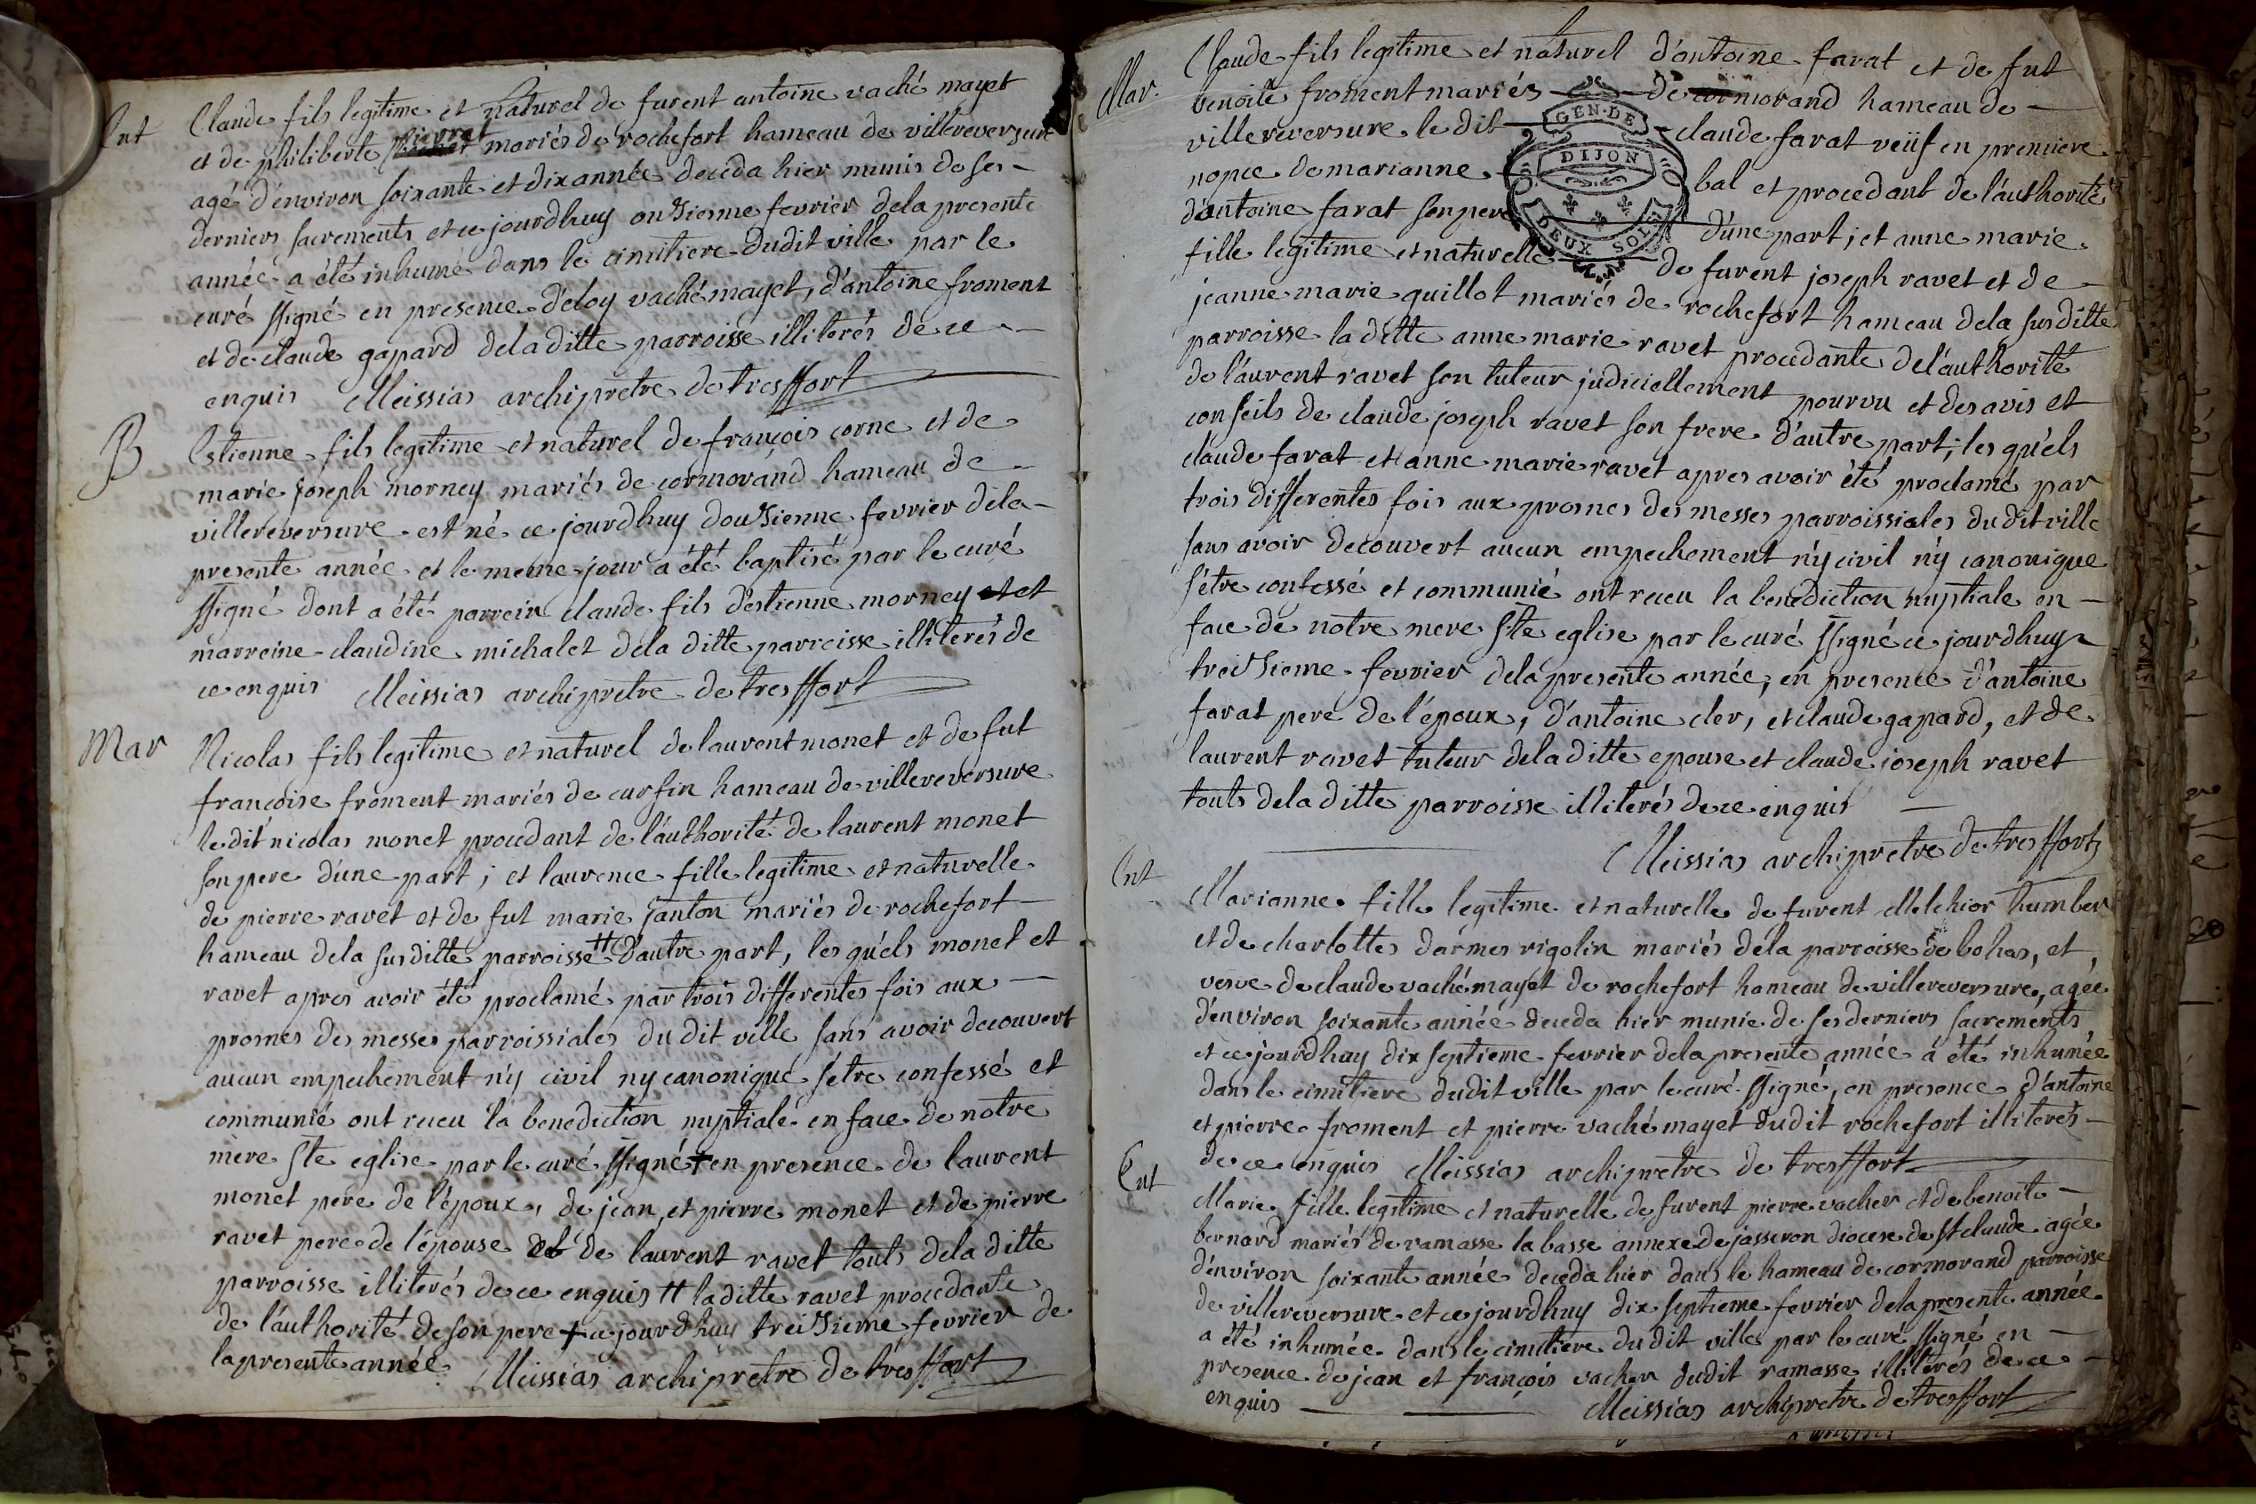 Ent
Claude fils legitime et naturel de furent antoine vaché mayet
et de philiberte pierret mariés de rochefort hameau de villereversure
agé d'environ soixante et dix année deceda hier munis de ses
derniers sacrements et ce jourdhuy onzieme fevrier dela presente
année a été inhumé dans le cimitiere dudit ville par le
curé ssigné en presence d'eloy vaché mayet, d'antoine froment
et de claude gapard dela ditte parroisse illiterés de ce
enquis Meissias archipretre de tresffort
B
Estienne fils legitime et naturel de françois corne et de
marie joseph morney mariés de cormorand hameau de
villereversure est né ce jourdhuy douzieme fevrier dela
presente année et le meme jour a été baptisé par le curé
ssigné dont a été parrein claude fils d'estienne morney et
marreine claudine michalet dela ditte parroisse illiterés de
ce enquis Meissias archipretre de tresffort
Mar
Nicolas fils legitime et naturel de laurent monet et de fut
françoise froment mariés de curfin hameau de villereversure
le dit nicolas monet procedant de l'authorité de laurent monet
son pere d'une part ; et laurence fille legitime et naturelle
de pierre ravet et de fut marie janton mariés de rochefort
hameau dela susditte parroisse # d'autre part, les quels monet et
ravet apres avoir été proclamé par trois differentes fois aux
prosnes des messes parroissiales du dit ville sans avoir decouvert
aucun empechement n'y civil ny canonique s'étre confessé et
communié ont receu la benediction nuptiale en face de notre
mere Ste eglise par le curé ssigné + en presence de laurent
monet pere de l'époux, de jean, et pierre monet et de pierre
ravet pere de l'épouse et de laurent ravet touts dela ditte
parroisse illiterés de ce enquis # laditte ravet procedante
de l'authorité de son pere + ce jourdhuy treizieme fevrier de
la presente année Meissias archipretre de tresffort
Mar.
Claude fils legitime et naturel d'antoine farat et de fut
benoite froment mariés de cormorand hameau de
villereversure le dit claude farat veüf en premiere
nopce de marianne bal et procedant de l'authorité
d'antoine farat son pere d'une part ; et anne marie
fille legitime et naturelle de furent joseph ravet et de
jeanne marie guillot mariés de rochefort hameau dela susditte
parroisse la ditte anne marie ravet procedante de l'authorité
de laurent ravet son tuteur judiciellement pourvu et des avis et
conseils de claude joseph ravet son frere d'autre part ; les quels
claude farat et anne marie ravet apres avoir été proclamé par
trois differentes fois aux prosnes des messes parroissiales du dit ville
sans avoir decouvert aucun empechement n'y civil n'y canonique
s'étre confessé et communié ont receu la benediction nuptiale en
face de notre mere Ste eglise par le curé ssigné ce jourdhuy
treizieme fevrier dela presente année, en presence d'antoine
farat pere de l'époux, d'antoine cler, et claude gapard, et de
laurent ravet tuteur dela ditte epouse et claude joseph ravet
touts dela ditte parroisse illiterés de ce enquis
Meissias archipretre de tresffort
GEN·DE
DIJON
DEUX SOLS
Ent
Marianne fille legitime et naturelle de furent Melchior humber
et de charlotte darmes rigolin mariés dela parroisse de bohas, et
vesve de claude vaché mayet de rochefort hameau de villereversure, agée
d'environ soixante année deceda hier munie de ses derniers sacrements,
et ce jourdhuy dix septieme fevrier dela presente année a été inhumée
dans le cimitiere dudit ville par le curé ssigné, en presence d'antoine
et pierre froment et pierre vaché mayet dudit rochefort illiterés
de ce enquis Meissias archipretre de tresffort
Ent
Marie fille legitime et naturelle de furent pierre vacher et de benoite
bernard mariés de ramasse la basse annexe de jasseron diocese de st claude agée
d'environ soixante année deceda hier dans le hameau de cormorand parroisse
de villereversure et ce jourdhuy dix septieme fevrier dela presente année
a été inhumée dans le cimitiere du dit ville par le curé ssigné en
presence de jean et françois vacher dudit ramasse illiterés de ce
enquis Meissias archipretre de tresffort